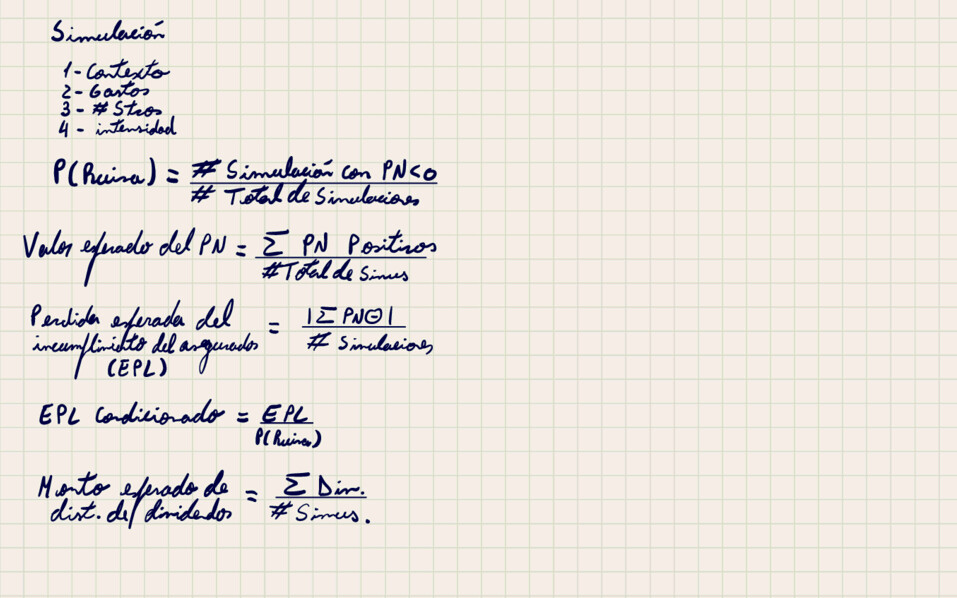 Simulación
1 - Contexto
2 - Gastos
3 - # Stros
4 - intensidad
P(Ruina) = # Simulación con PN<0 / # Total de Simulaciones
Valor esperado del PN = Σ PN Positivos / # Total de Simus
Perdida esperada del incumplimiento del asegurados (EPL) = |Σ PN⊖| / # Simulaciones
EPL Condicionado = EPL / P(Ruina)
Monto esperado de dist. de dividendos = Σ Div. / # Simus.